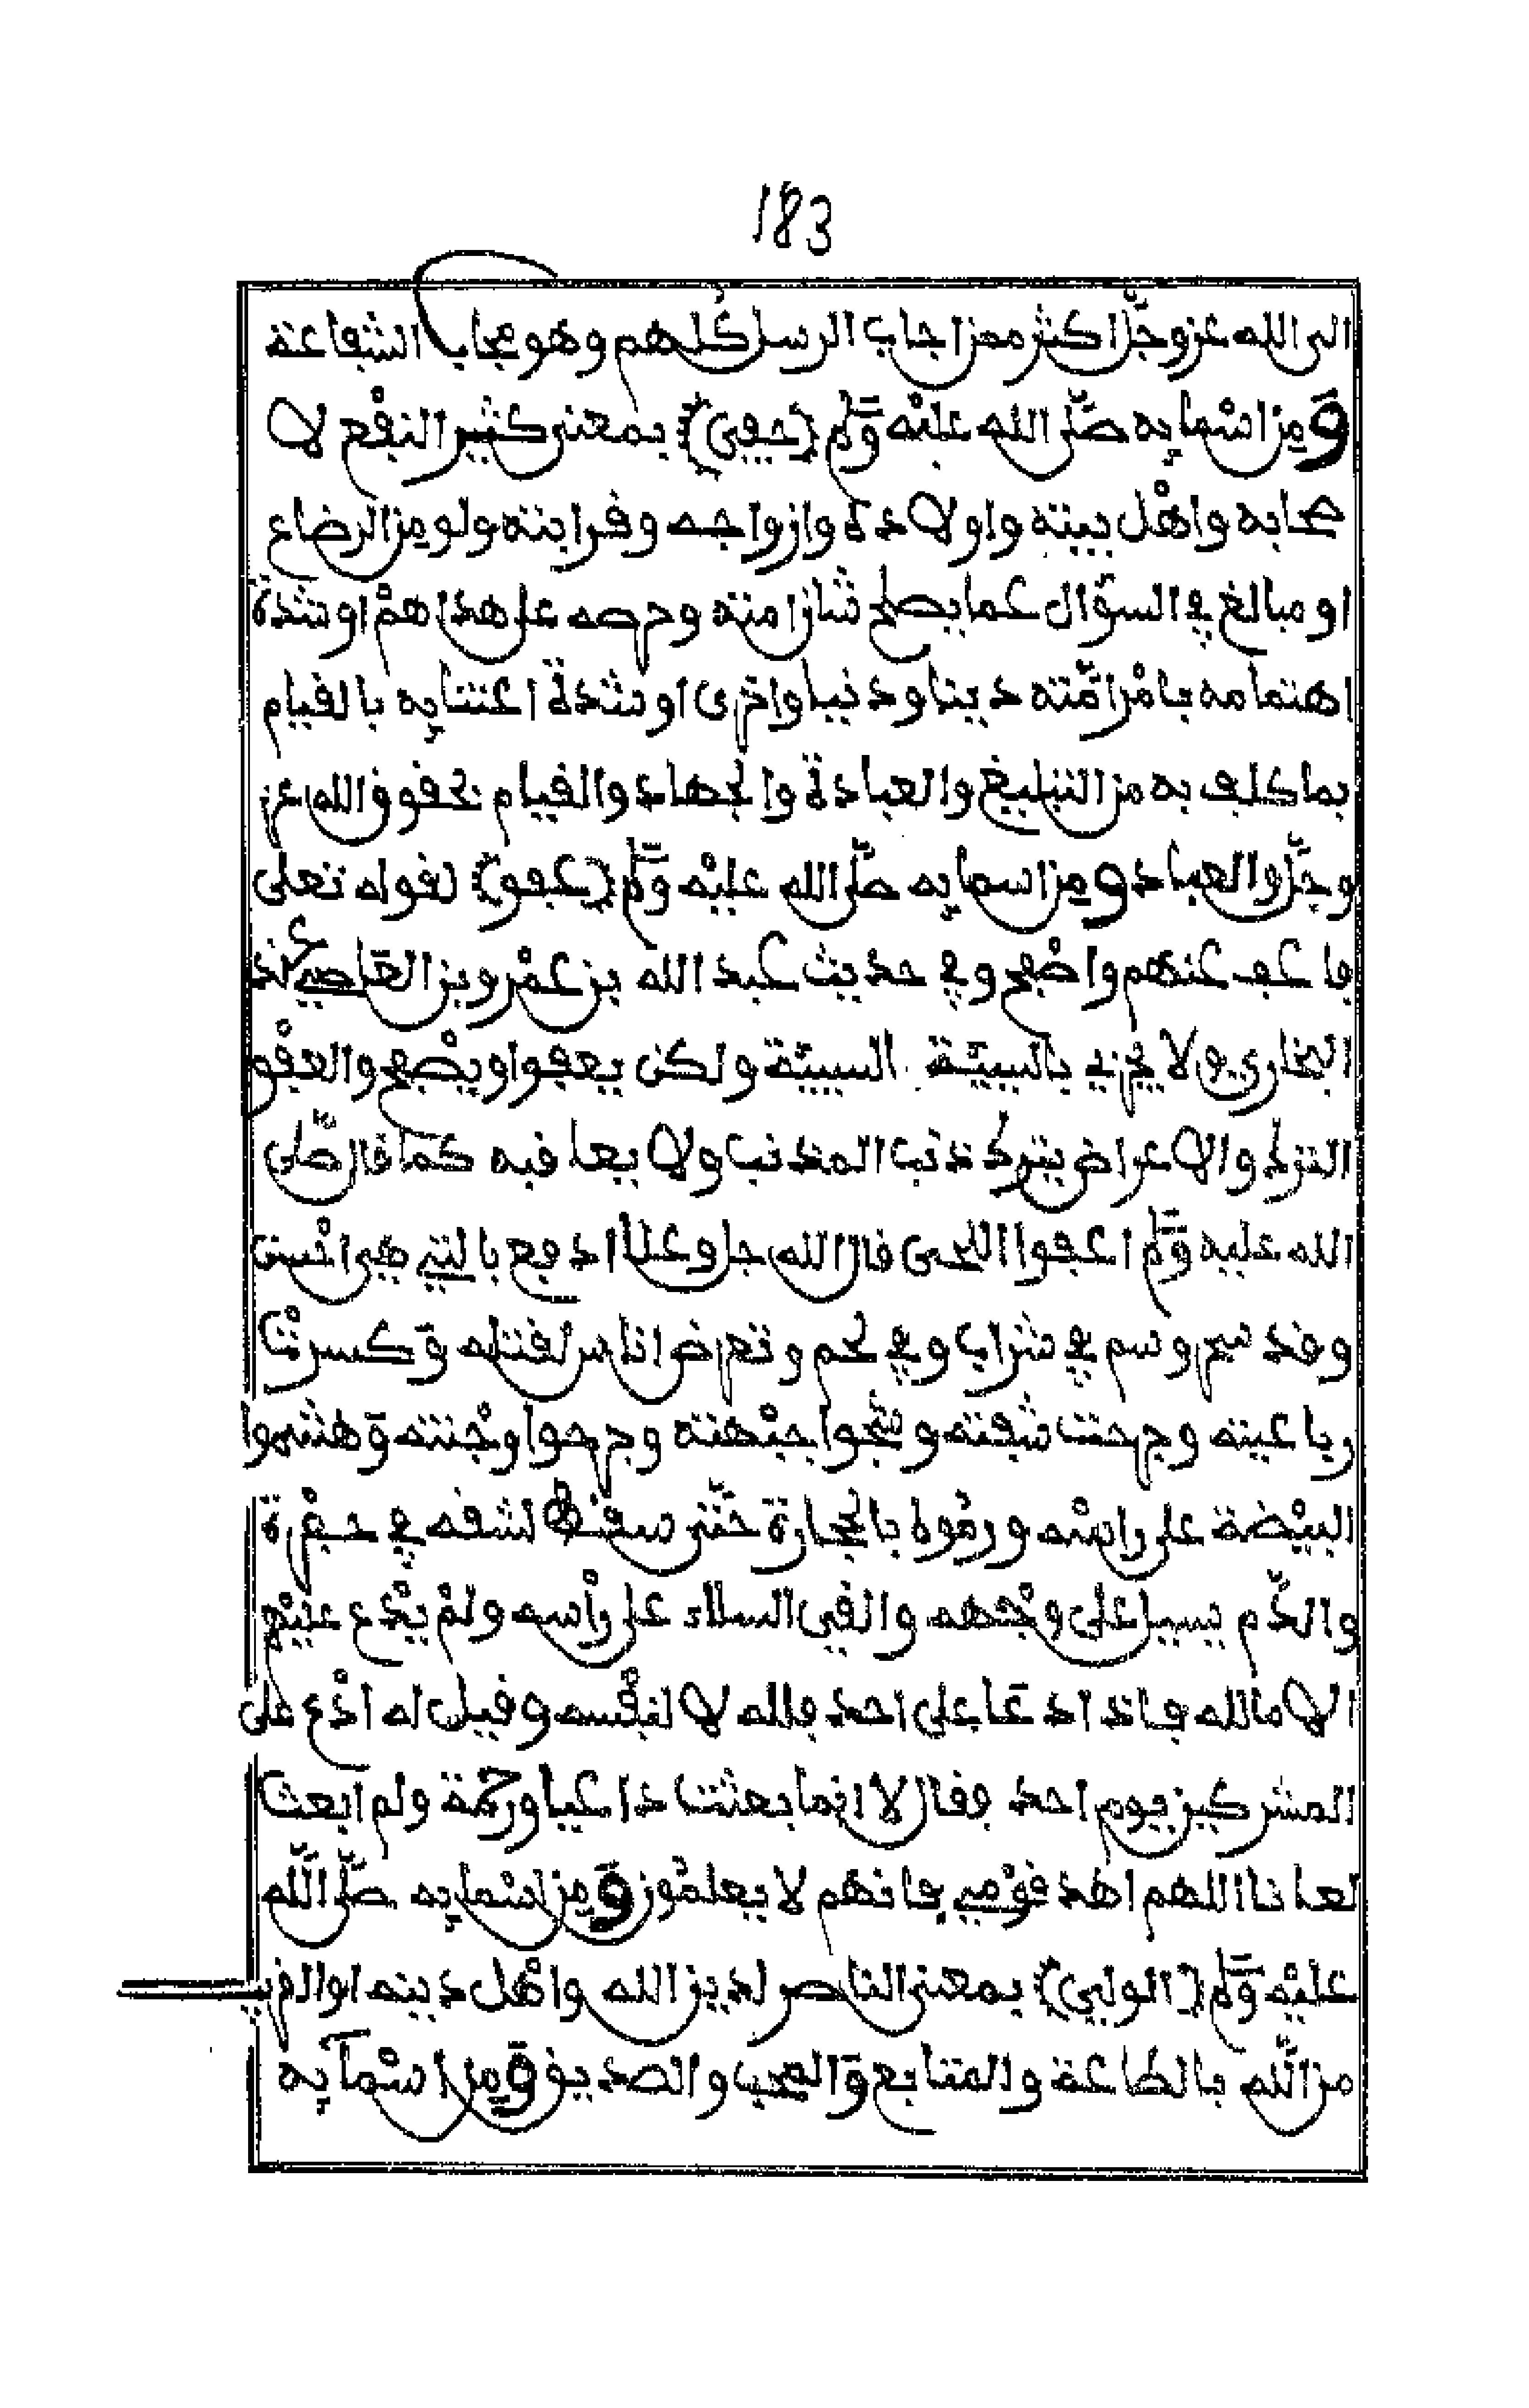 183
الى الله عز وجل اكثر ممن اجاب الرسل كلهم وهو مجاب الشفاعة
ومن اسمايه صلى الله عليه وسلم (حفي) بمعنى كثير النفع لا
صحابه واهل بيته واولاده وازواجه وقرابته ولو من الرضاع
او مبالغ في السؤال عما يصلح شان امته وحرصه على هداهم او شدة
اهتمامه بامر امته دينا ودنيا واخرى او شدة اعتنايه بالقيام
بما كلف به من التبليغ والعبادة والجهاد والقيام بحقوق الله عز
وجل والعباد ومن اسمايه صلى الله عليه وسلم (عفو) لقوله تعلى
فاعف عنهم واصفح وفي حديث عبد الله بن عمرو بن العاصي عند
البخاري ولا يجزي بالسيئة السيئة ولكن يعفوا ويصفح والعفو
الترك والاعراض بترك ذنب المذنب ولا يعاقبه كما قال صلى
الله عليه وسلم اعفوا اللحى قال الله جل وعلا ادفع بالتي هي احسن
وقد سحر وسم في شراب وفي لحم وتعرض اناس لقتله وكسرت
رباعيته وجرحت شفته وشجوا جبهته وجرحوا وجنته وهشموا
البيضة على راسه ورموه بالحجارة حتى سقط لشقه في حفرة
والدم يسيل على وجهه والقي السلاء على رأسه ولم يدع عليهم
الا ما لله فاذا دعا على احد فلله لا لنفسه وقيل له ادع على
المشركين يوم احد فقال لا انما بعثت داعيا ورحمة ولم ابعث
لعانا اللهم اهد قومي فانهم لا يعلمون ومن اسمايه صلى الله
عليه وسلم (الولي) بمعنى الناصر لدين الله واهل دينه او القريب
من الله بالطاعة والمتابع والمحب والصديق ومن اسمايه